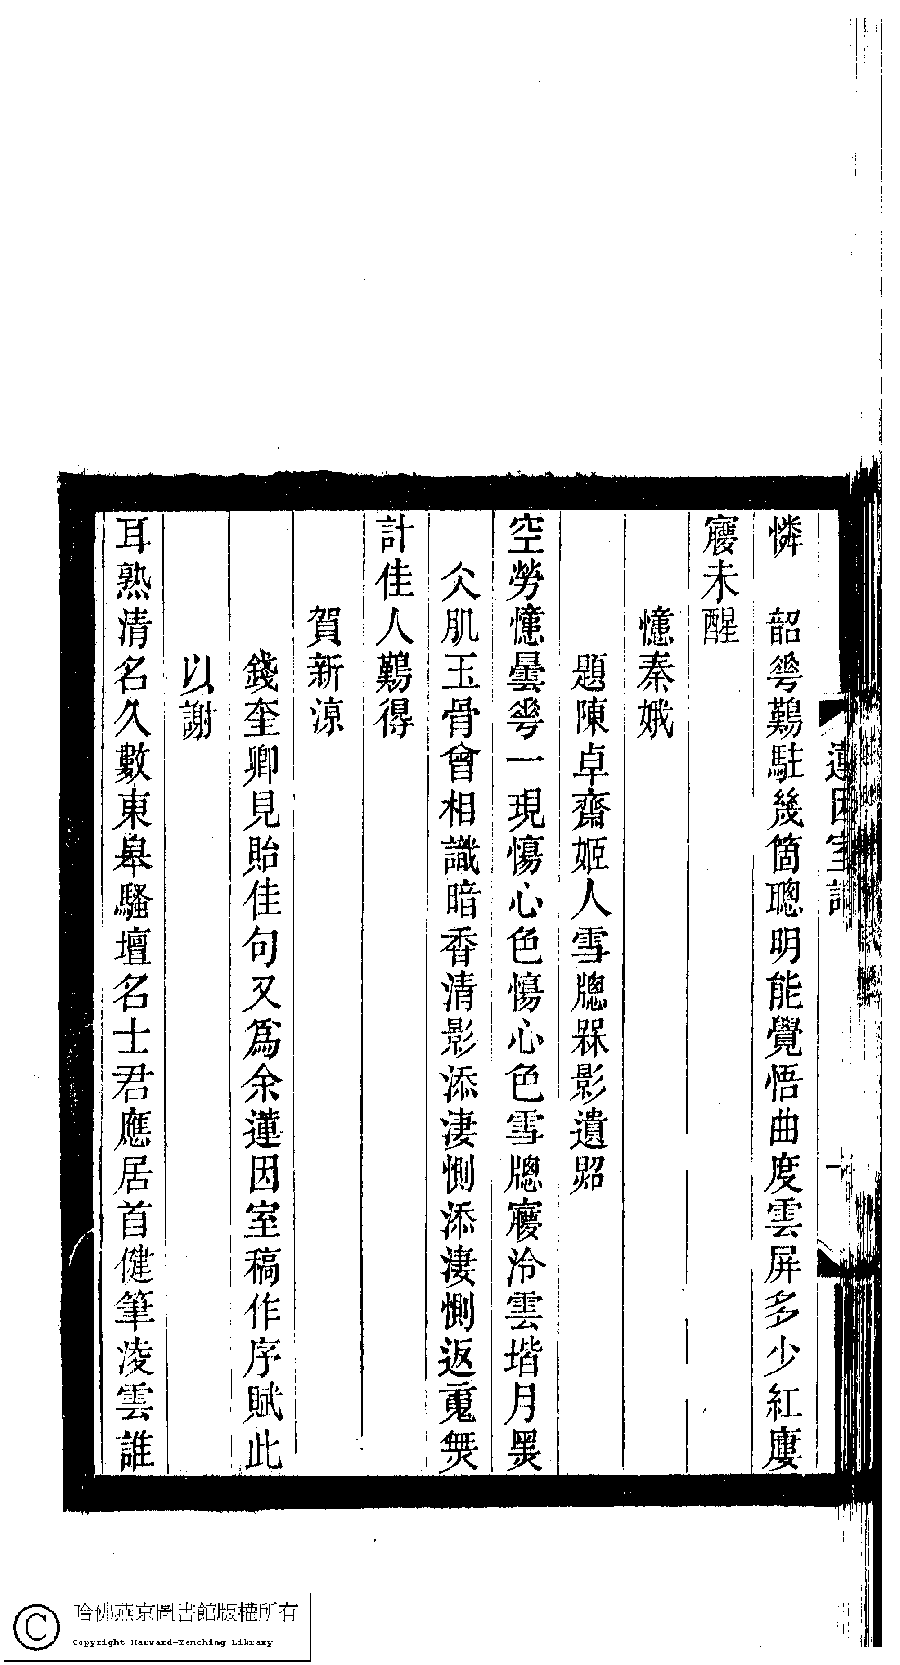 憐　韶華難駐幾箇聰明能覺悟曲度雲屏多少紅廔
寱未醒
憶秦娥
題陳卓齋姬人雪牎槑影遺照
空勞憶曇華一現傷心色傷心色雪牎寱冷雲堦月黑
仌肌玉骨曾相識暗香清影添淒惻添淒惻返䰟無
計佳人難得
賀新涼
錢奎卿見貽佳句又爲余蓮因室稿作序賦此
以謝
耳熟清名久數東皋騷壇名士君應居首健筆凌雲誰
蓮因室詞
十
哈佛燕京圖書館版權所有
Copyright Harvard-Yenching Library